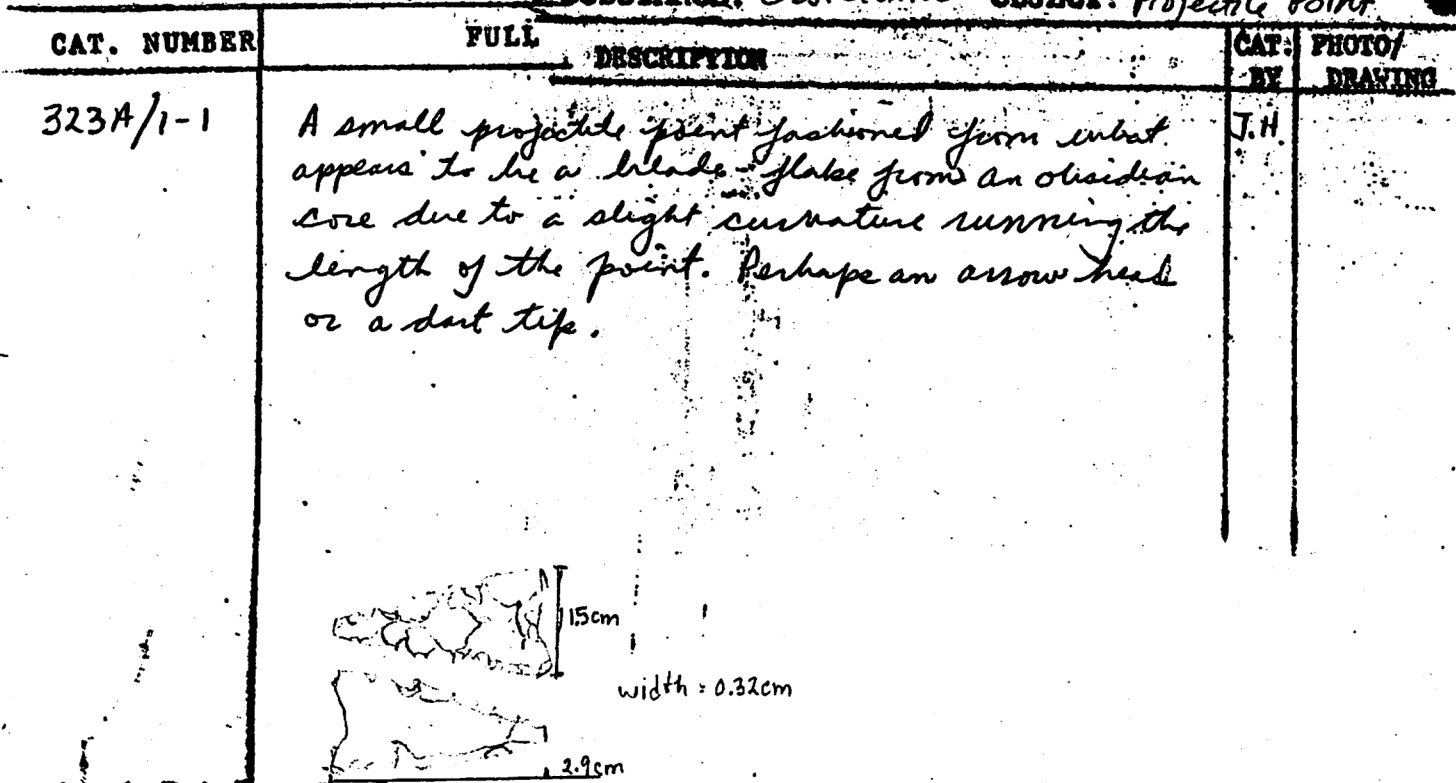 OBJECT: Projectile Point
CAT. NUMBER
FULL DESCRIPTION
CAT. BY
PHOTO/ DRAWING
323A/1-1
J.H.
A small projectile point fashioned from what
appears to be a blade-flake from an obsidian
core due to a slight curvature running the
length of the point. Perhaps an arrow head
or a dart tip.
1.5cm
width = 0.32cm
2.9cm